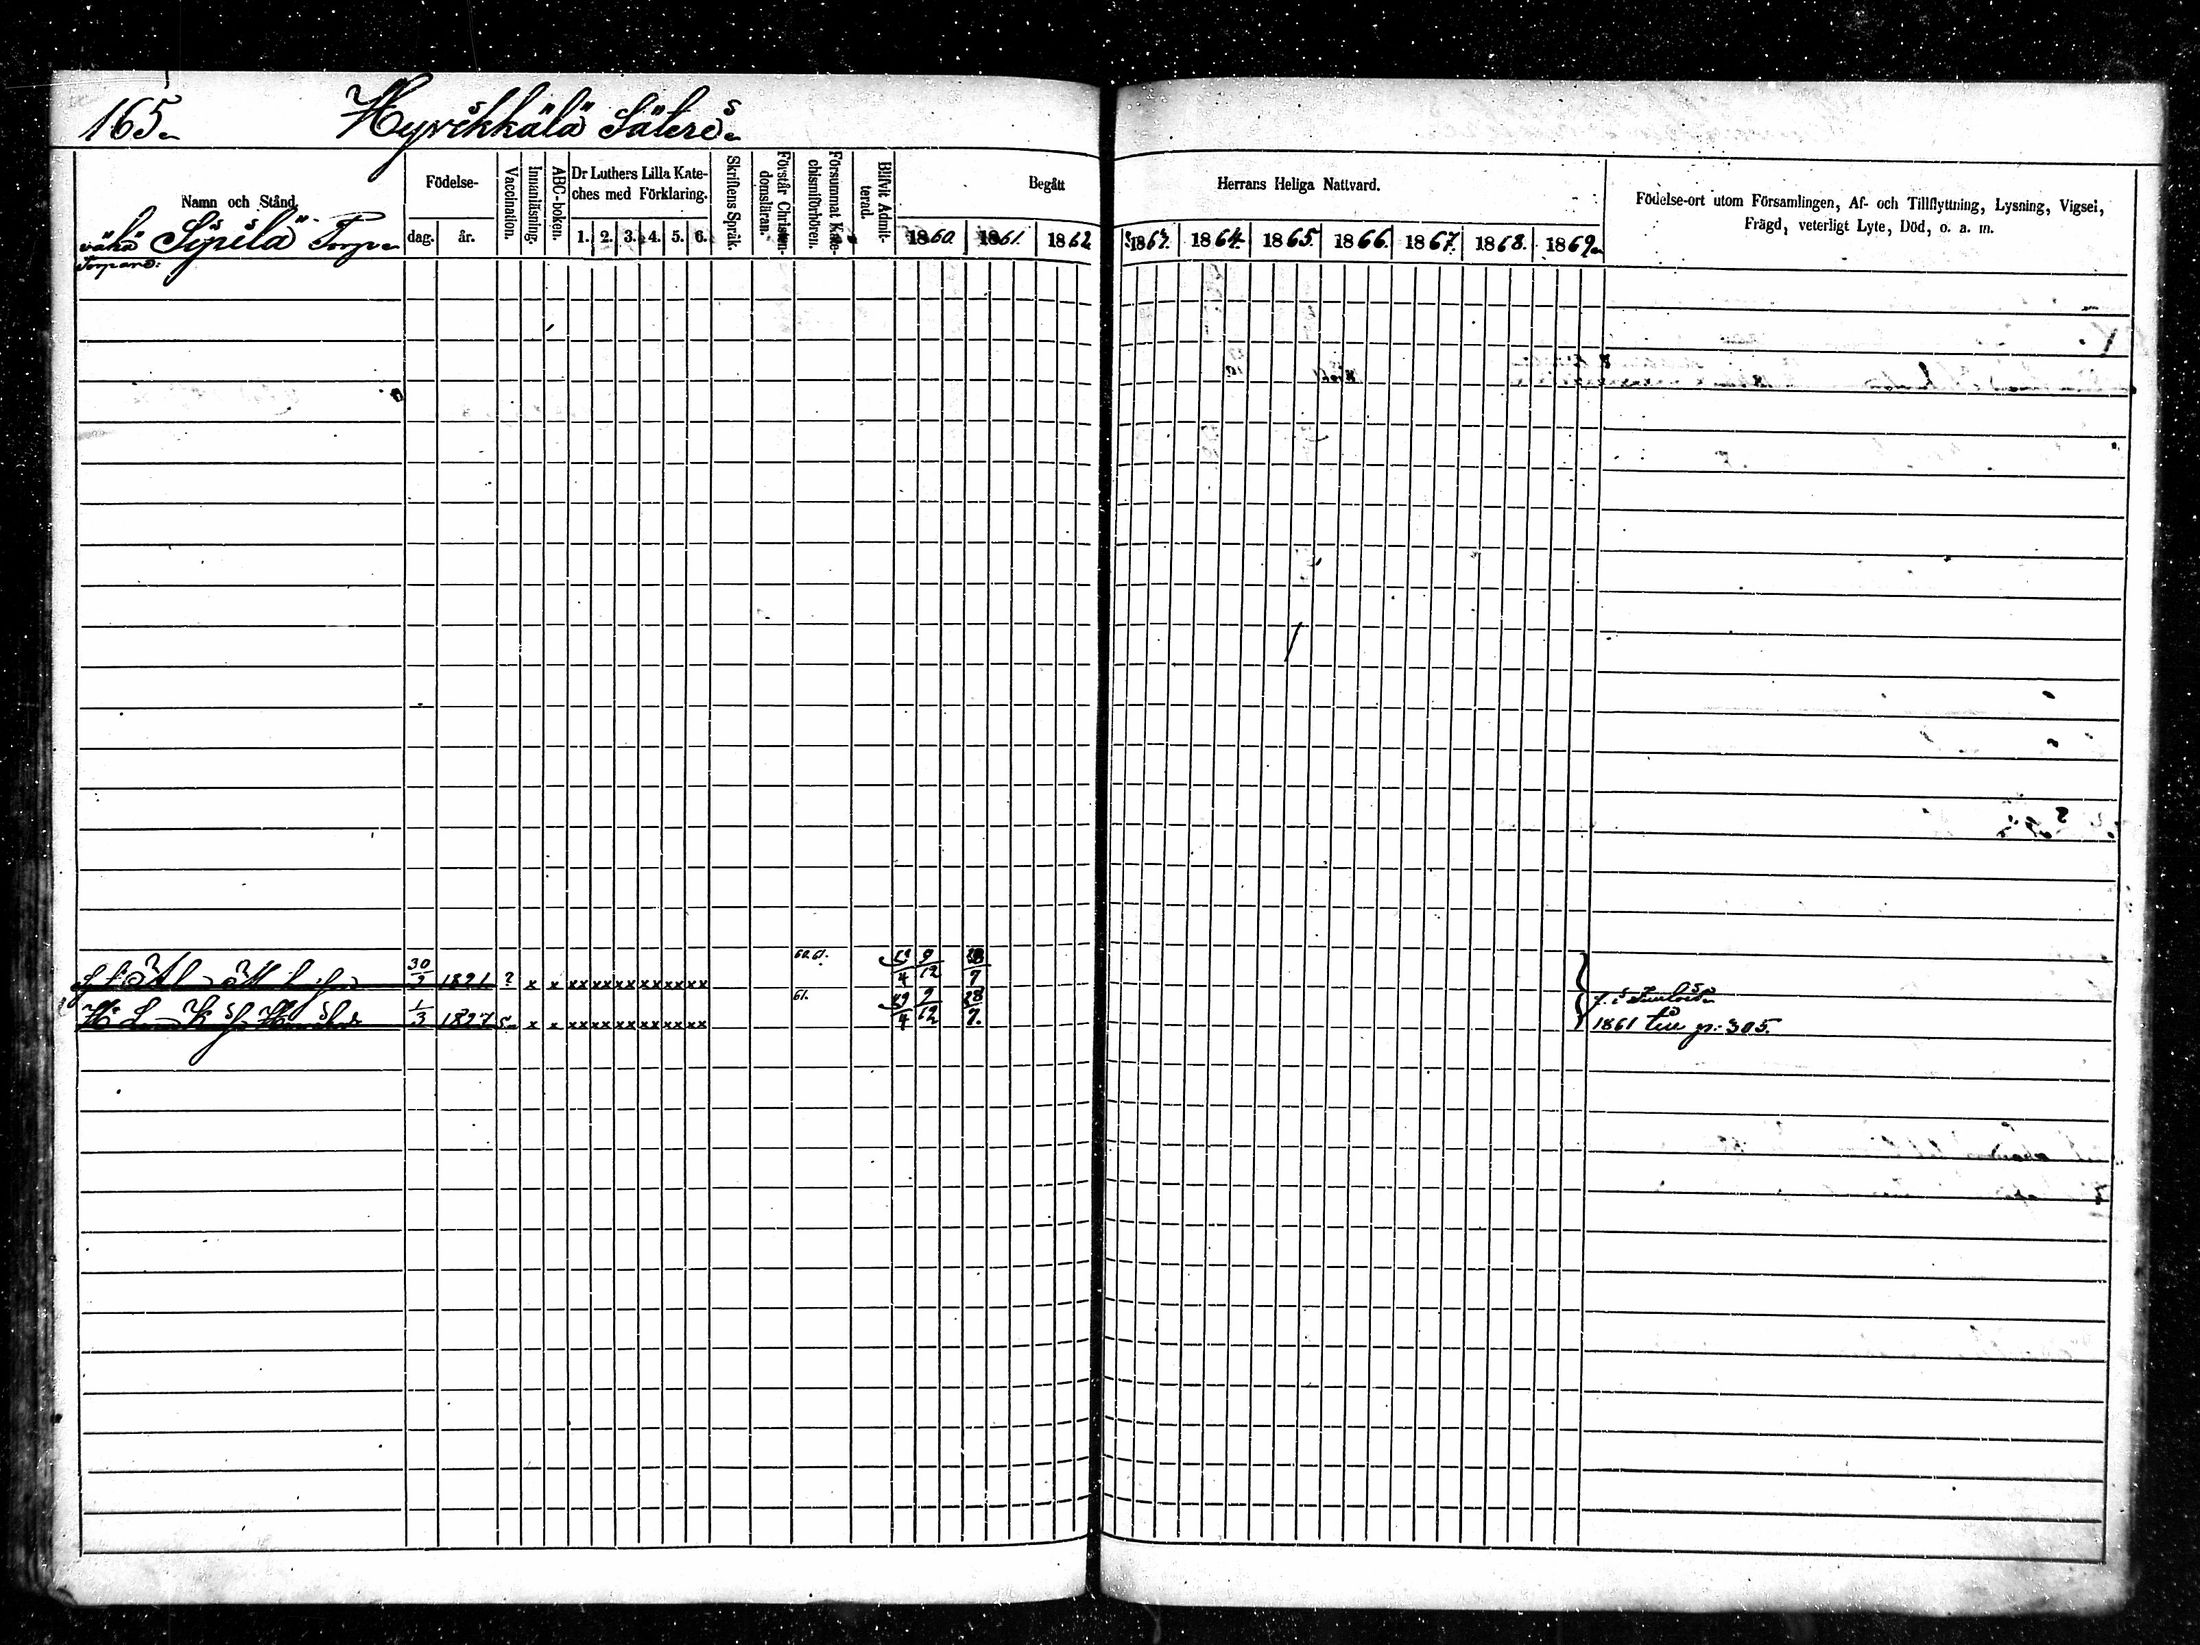 165.
Hyvikkälä Säteri
Namn och Stånd.
Födelse-
dag. år.
Vaccination.
Innanläsning.
ABC-boken.
Dr Luthers Lilla Kate-
ches med Förklaring.
1. 2. 3. 4. 5. 6.
Skriftens Språk.
Förstår Christen-
domsläran.
Försummat Kate-
chismiförhören.
Blifvit Admit-
terad.
Begått Herrans Heliga Nattvard.
1860. 1861. 1862 1863. 1864. 1865. 1866. 1867. 1868. 1869
Födelse-ort utom Församlingen, Af- och Tillflyttning, Lysning, Vigsel,
Frägd, veterligt Lyte, Död, o. a. m.
vähä Sipilä Torp
Torpare:
30/9 1821. ? x x xx xx xx xx xx xx 60.61. 9/12 28/7
1/3 1827 x x xx xx xx xx xx xx 61. 29/4 9/12 28/7.
1861 till p: 305.